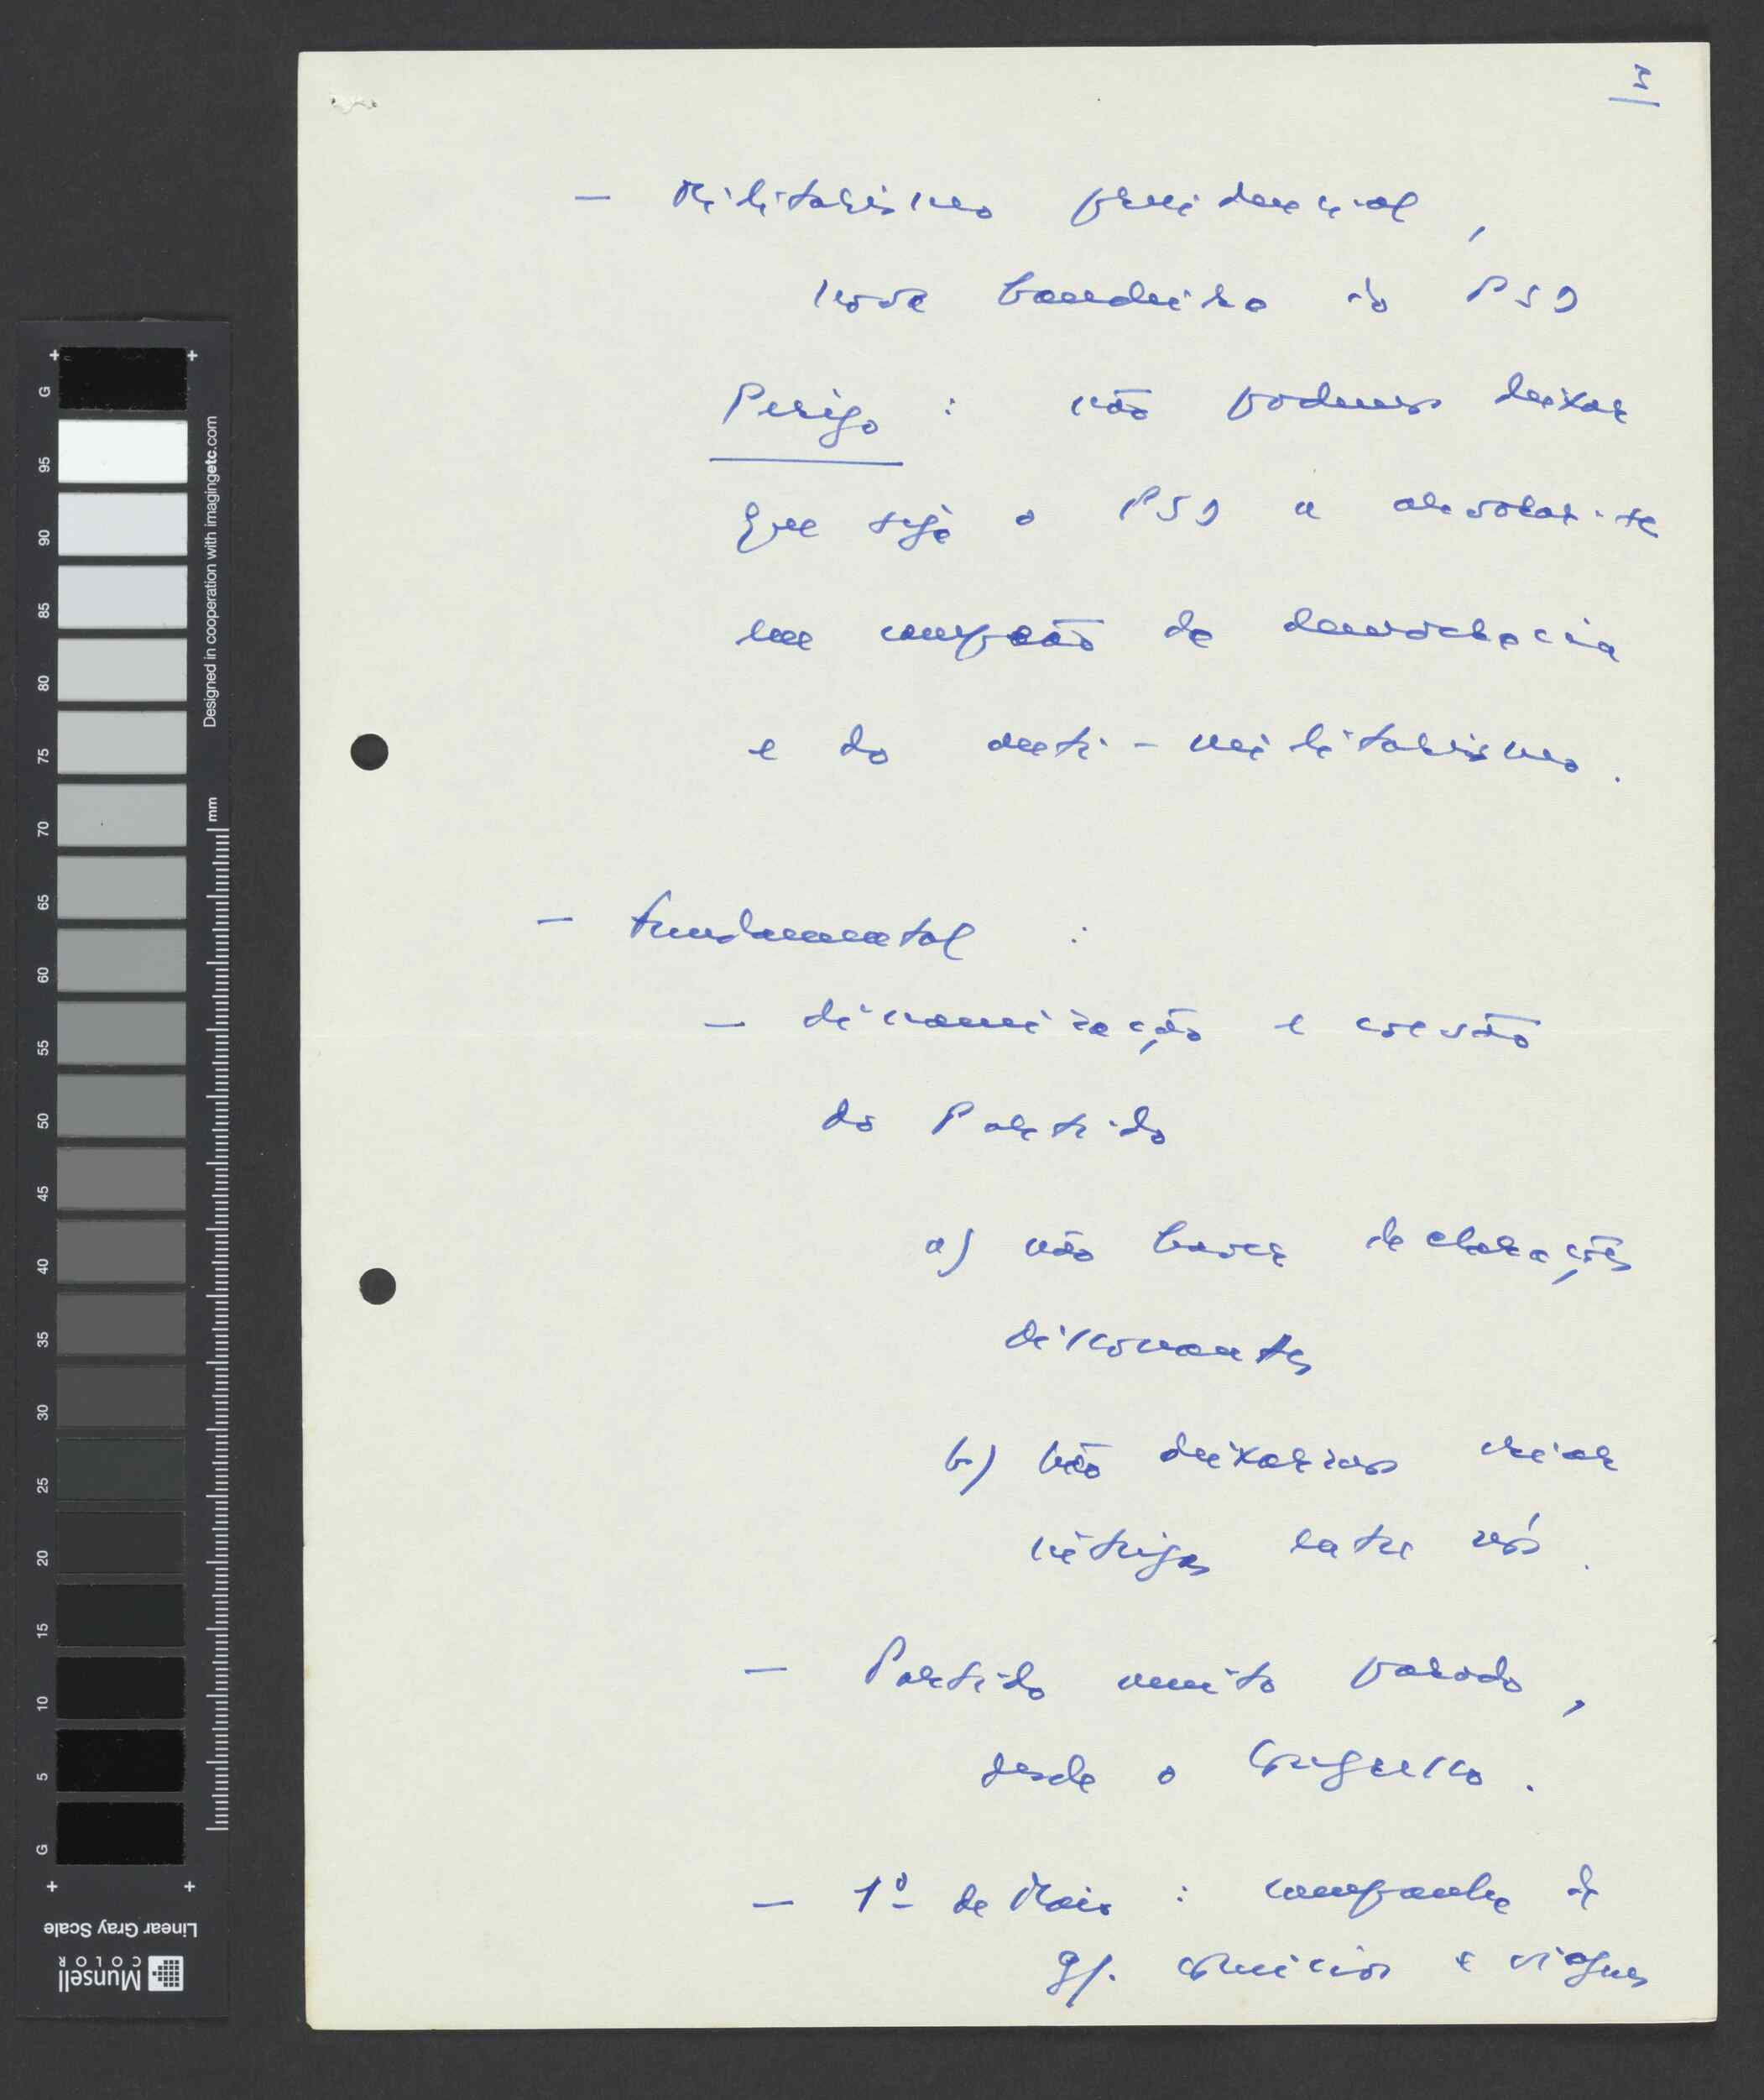 3
— Militarismo presidencial,
nova bandeira do PSD
Perigo : não podemos deixar
que seja o PSD a arvorar-se
em campeão da democracia
e do anti-militarismo.
— Fundamental :
— dinamização e coesão
do Partido
a) não haver declarações
dissonantes
b) não deixarmos criar
intrigas entre nós.
— Partido muito parado,
desde o Congresso.
— 1º de Maio : campanha de
gr. comícios e viagens
G
95
90
85
80
75
70
65
60
55
50
45
40
35
30
25
20
15
10
5
G
Designed in cooperation with imagingetc.com
mm
Linear Gray Scale
Munsell
COLOR